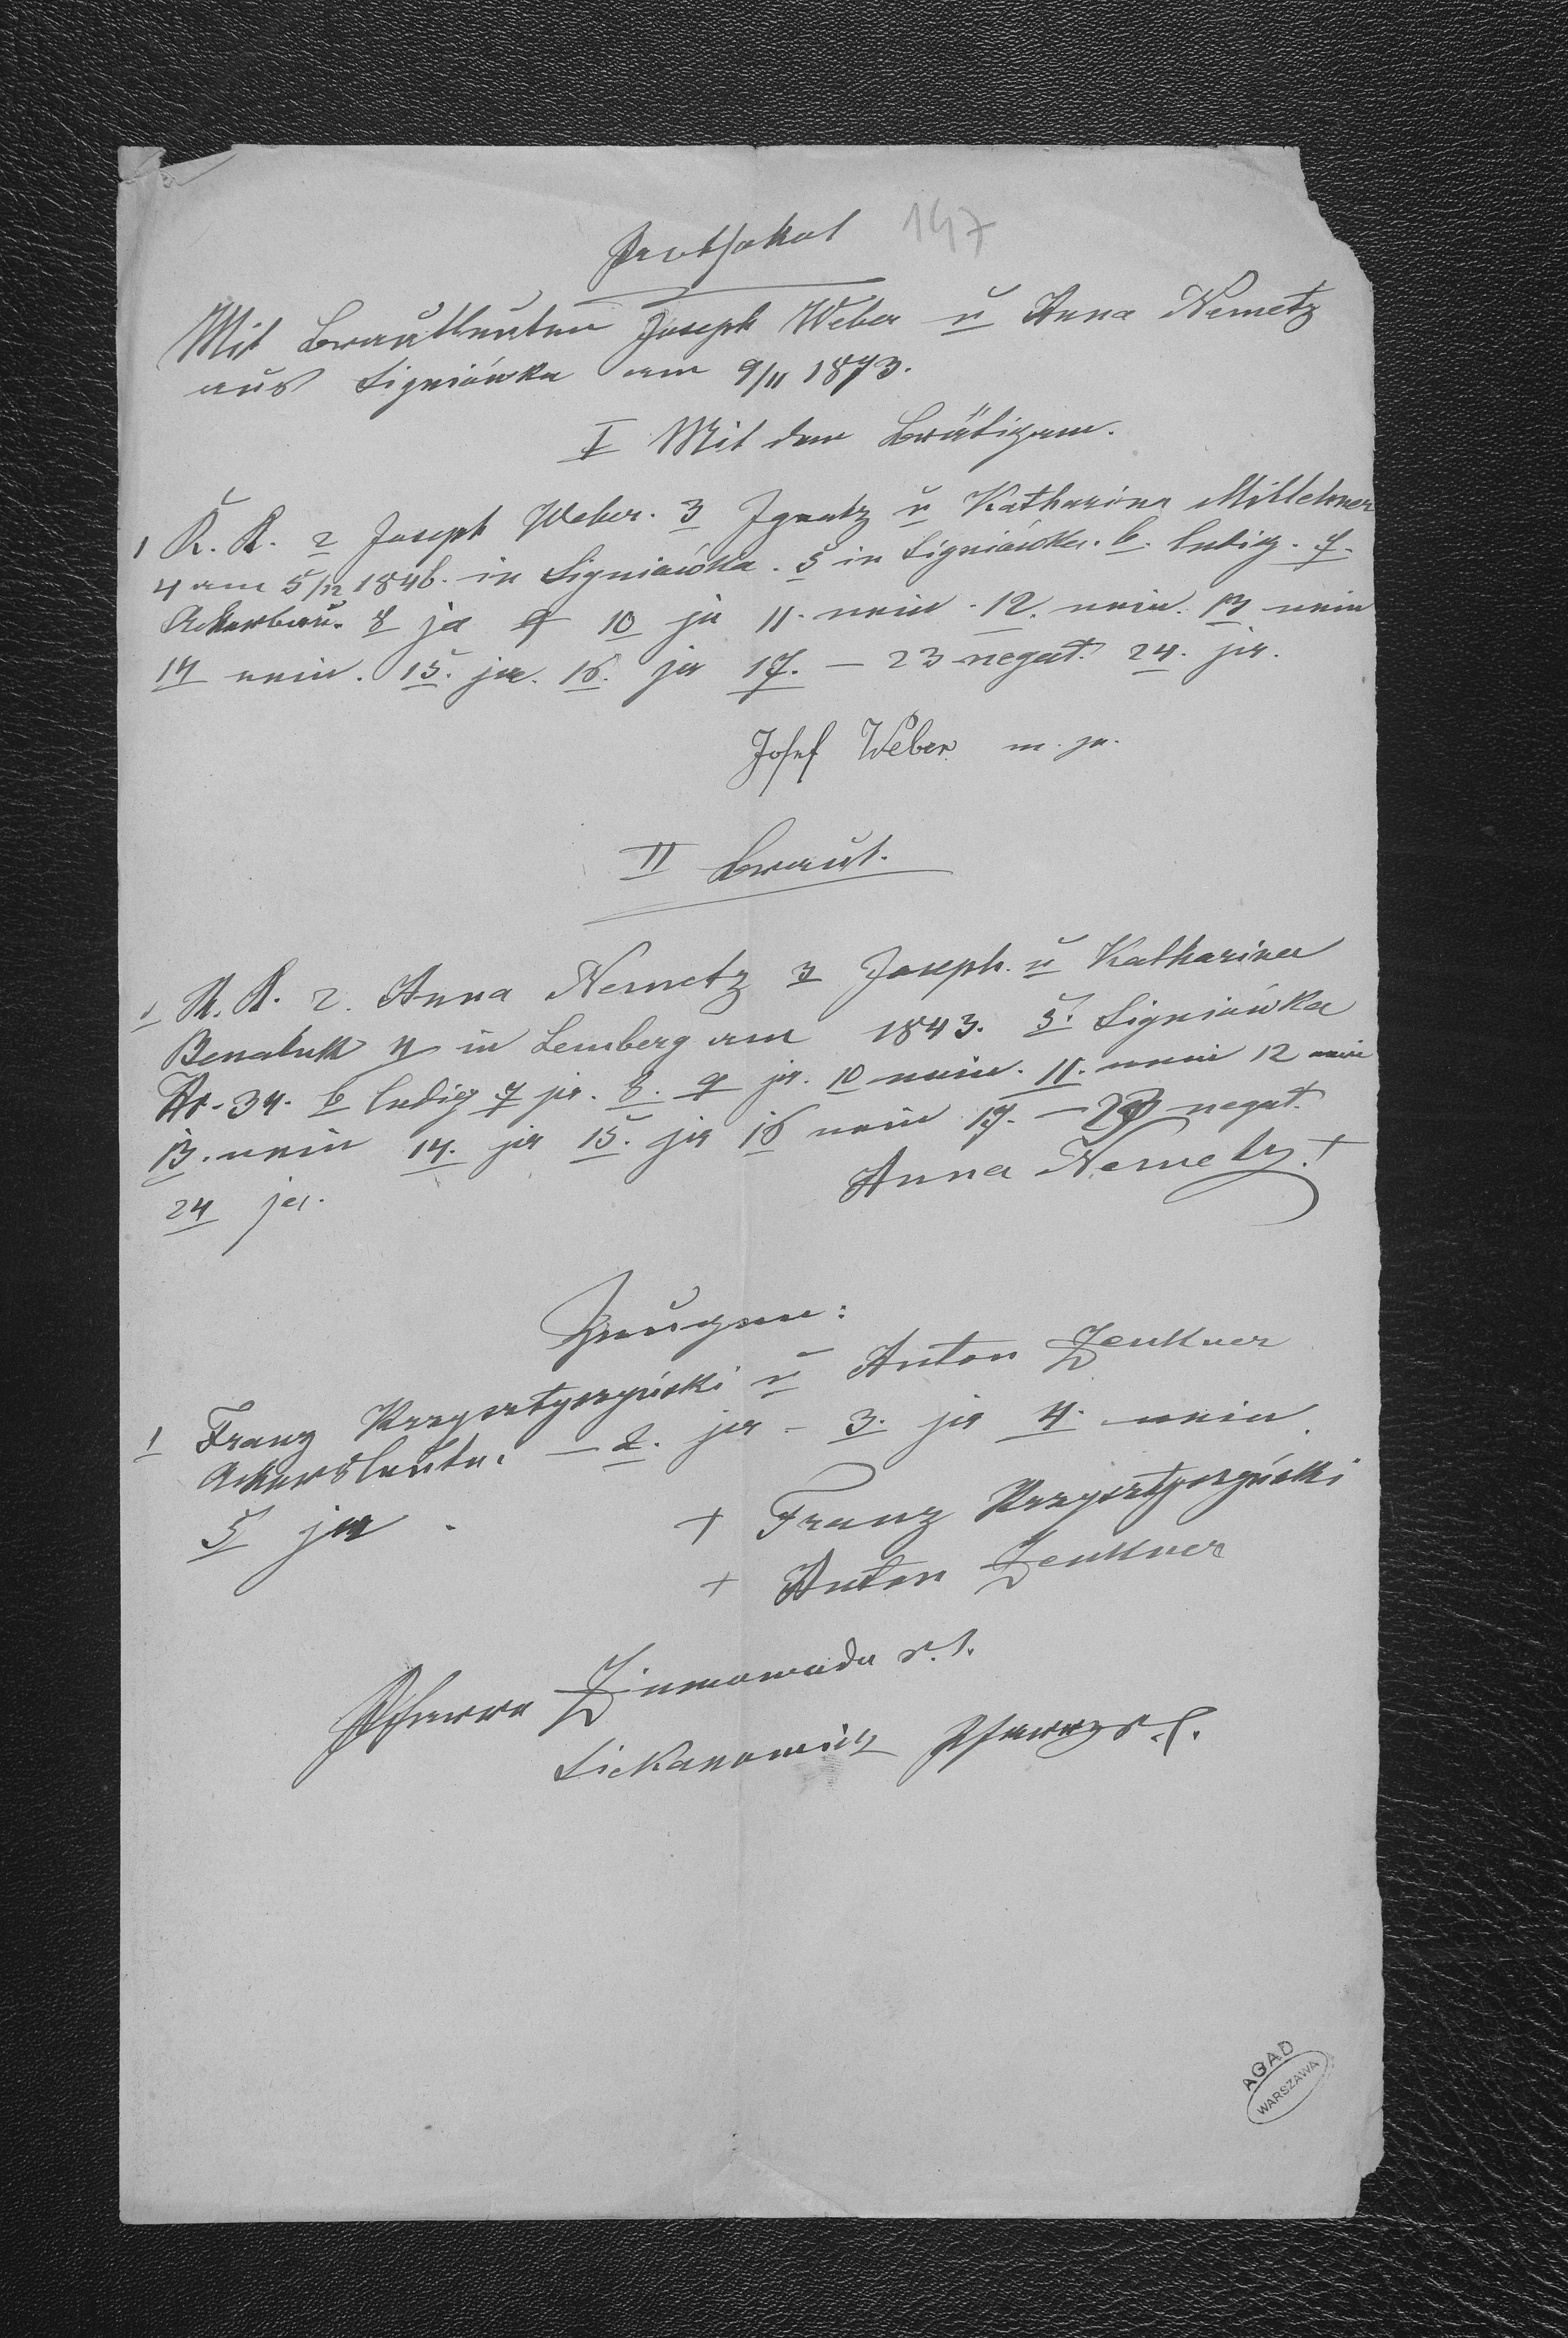 Protokol 147
Mit Brautleuten Joseph Weber u Anna Nemetz
aus Signiówka am 9/11 1873.
I Mit dem Brätigam.
1 R. K. 2 Joseph Weber. 3 Ignatz u Katharina
4 am 5/12 1846. in Signiówka. 5 in Signiówka. 6. ledig. 7.
Ackerbau. 8 ja 9 10 ja 11. nein. 12. nein. 13 nein
14 nein. 15. ja. 16. ja 17. — 23 negat. 24. ja.
Josef Weber
II Braut.
1 R. K. 2. Anna Nemetz 3 Joseph u Katharina
4 in Lemberg am 1843. 5. Signiówka
Nr. 34. 6 ledig 7 ja. 8. 9 ja. 10 nein. 11. nein 12 nein
13. nein 14. ja 15. ja 16 nein 17. — 23 negat.
24 ja.
Anna Nemetz. +
Zeugen:
1 Franz u Anton Zenkner
Ackersleute. — 2. ja — 3. ja 4. nein.
5 ja.
+ Franz
+ Anton Zenkner
Pfarre Zimnawoda r. l.
Sickanowicz Pfarrer r. l.
AGAD
WARSZAWA